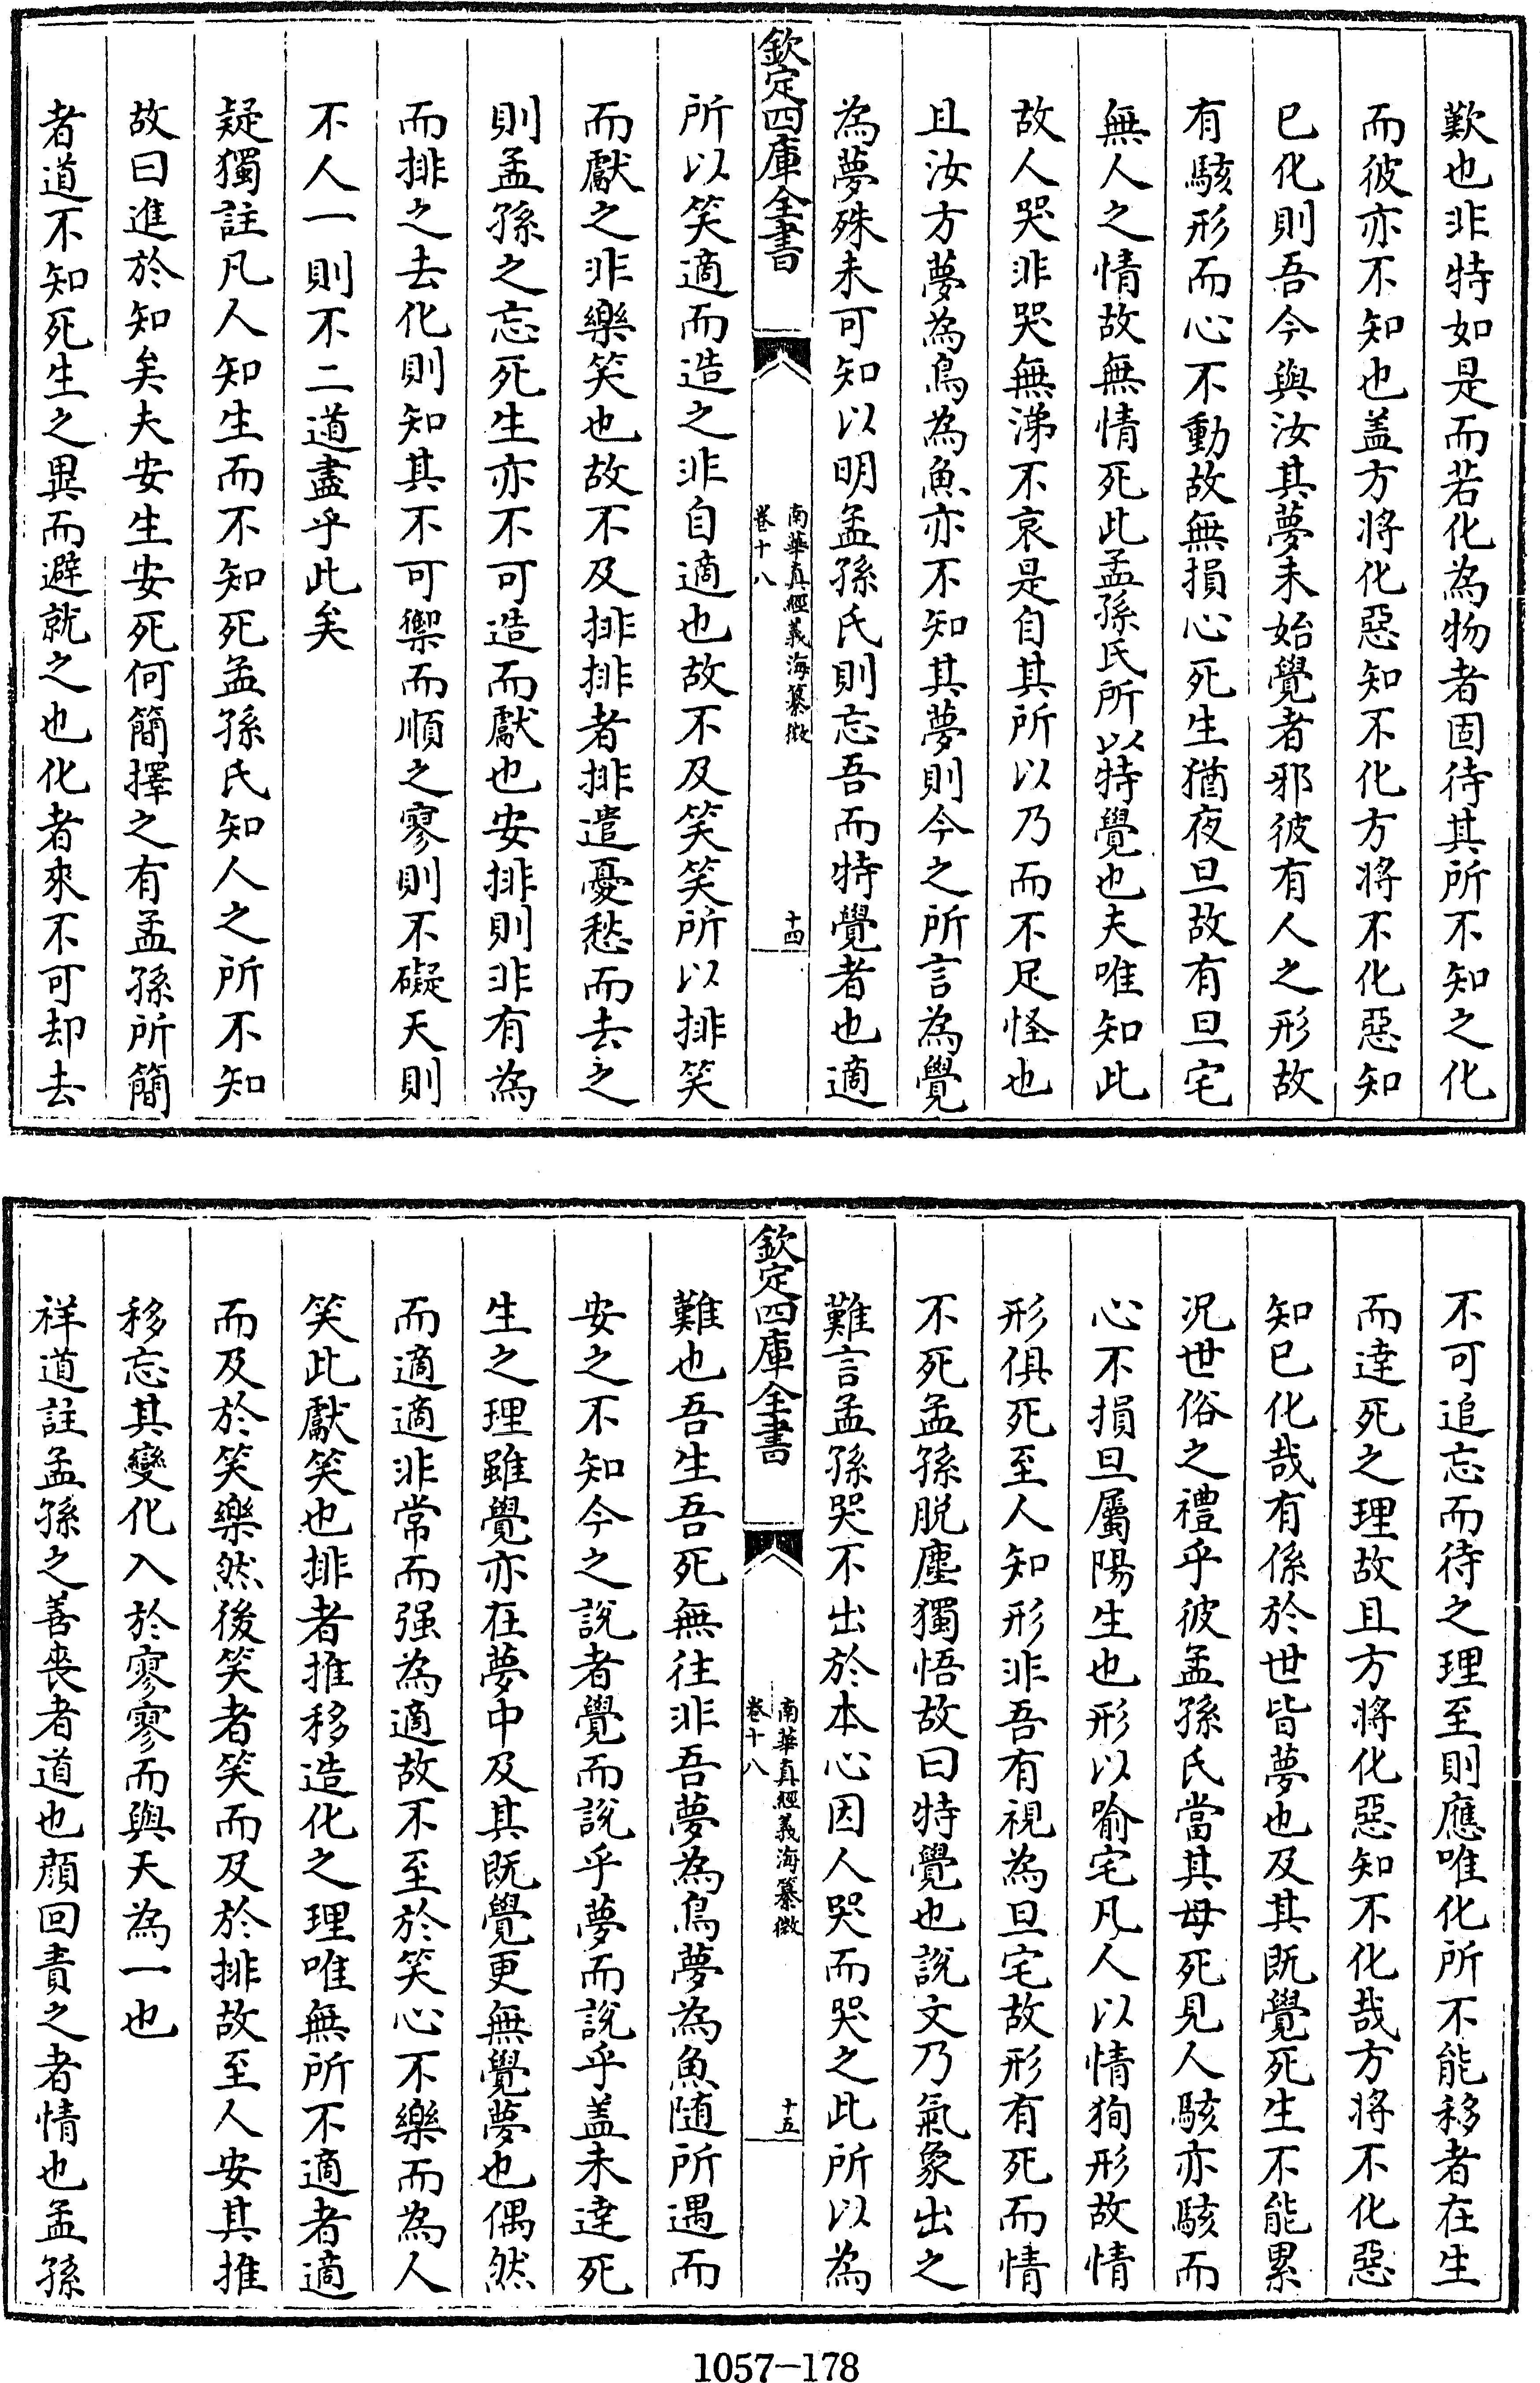 歎也非特如是而若化為物者固待其所不知之化
而彼亦不知也盖方将化惡知不化方将不化惡知
已化則吾今與汝其夢未始覺者邪彼有人之形故
有駭形而心不動故無損心死生猶夜旦故有旦宅
無人之情故無情死此孟孫氏所以特覺也夫唯知此
故人哭非哭無涕不哀是自其所以乃而不足怪也
且汝方夢為鳥為魚亦不知其夢則今之所言為覺
為夢殊未可知以明孟孫氏則忘吾而特覺者也適
欽定四庫全書
南華真經義海纂微
卷十八
十四
所以笑適而造之非自適也故不及笑笑所以排笑
而獻之非樂笑也故不及排排者排遣憂愁而去之
則孟孫之忘死生亦不可造而獻也安排則非有為
而排之去化則知其不可禦而順之寥則不礙天則
不人一則不二道盡乎此矣
疑獨註凡人知生而不知死孟孫氏知人之所不知
故曰進於知矣夫安生安死何簡擇之有孟孫所簡
者道不知死生之異而避就之也化者來不可却去
不可追忘而待之理至則應唯化所不能移者在生
而達死之理故且方将化惡知不化哉方将不化惡
知已化哉有係於世皆夢也及其既覺死生不能累
况世俗之禮乎彼孟孫氏當其母死見人駭亦駭而
心不損旦屬陽生也形以喻宅凡人以情狥形故情
形俱死至人知形非吾有視為旦宅故形有死而情
不死孟孫脱塵獨悟故曰特覺也說文乃氣象出之
難言孟孫哭不出於本心因人哭而哭之此所以為
欽定四庫全書
南華真經義海纂微
卷十八
十五
難也吾生吾死無往非吾夢為鳥夢為魚随所遇而
安之不知今之說者覺而說乎夢而說乎盖未達死
生之理雖覺亦在夢中及其既覺更無覺夢也偶然
而適適非常而强為適故不至於笑心不樂而為人
笑此獻笑也排者推移造化之理唯無所不適者適
而及於笑樂然後笑者笑而及於排故至人安其推
移忘其變化入於寥寥而與天為一也
祥道註孟孫之善喪者道也顔回責之者情也孟孫
1057-178